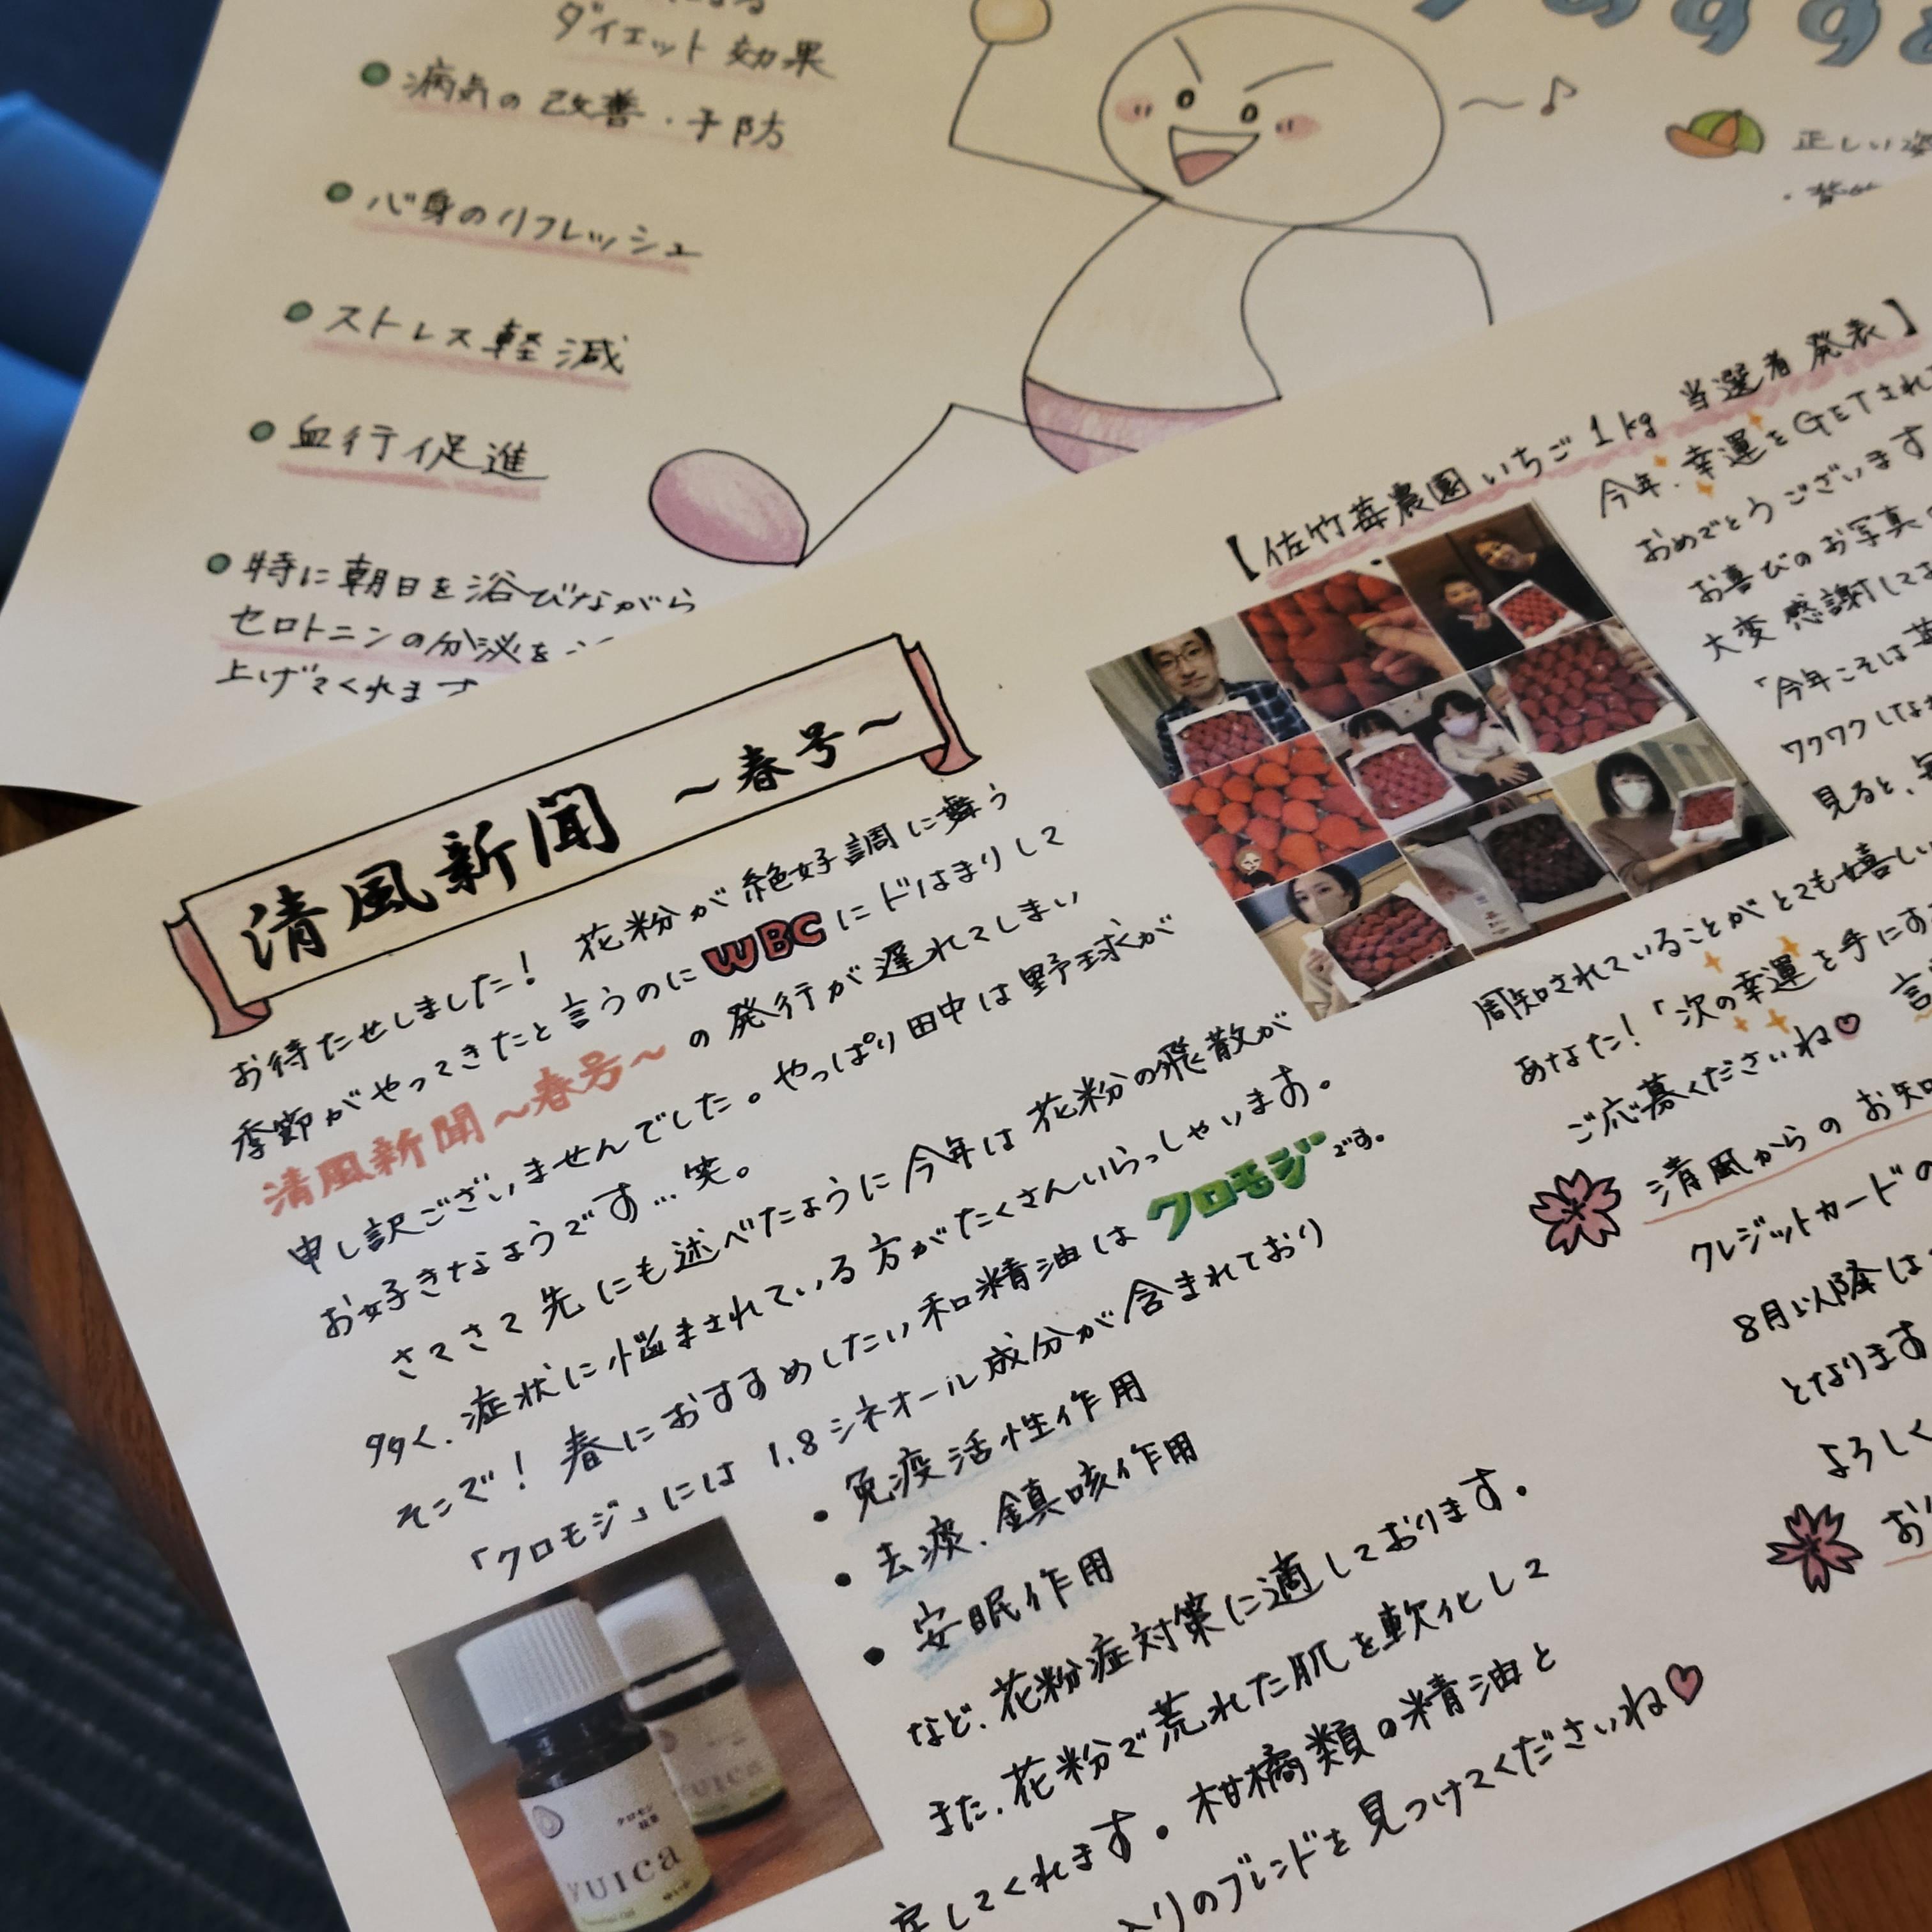 ダイエット効果
病気の改善・予防
心身のリフレッシュ
ストレス軽減
血行促進
特に朝日を浴びながら
セロトニンの分泌を
上げてくれます
正しい姿
清風新聞 ～春号～
お待たせしました! 花粉が絶好調に舞う
季節がやってきたと言うのにWBCにドはまりして
清風新聞～春号～の発行が遅れてしまい
申し訳ございませんでした。やっぱり田中は野球が
お好きなようです…笑。
さてさて先にも述べたように今年は花粉の飛散が
多く、症状に悩まされている方がたくさんいらっしゃいます。
そこで! 春におすすめしたい和精油はクロモジです。
「クロモジ」には1.8シネオール成分が含まれており
・免疫活性作用
・去痰、鎮咳作用
・安眠作用
など、花粉症対策に適しております。
また、花粉で荒れた肌を軟化して
定してくれます。柑橘類の精油と
入りのブレンドを見つけてくださいね♡
クロモジ
yuica
yuica
【佐竹苺農園いちご1kg 当選者発表】
今年、幸運をGETされ
おめでとうございます
お喜びのお写真
大変感謝して
「今年こそは
ワクワクしな
見ると、
周知されていることがとても嬉しい
あなた!「次の幸運を手にす
ご応募くださいね♡
清風からのお知
クレジットカードの
8月以降は
となります
よろしく